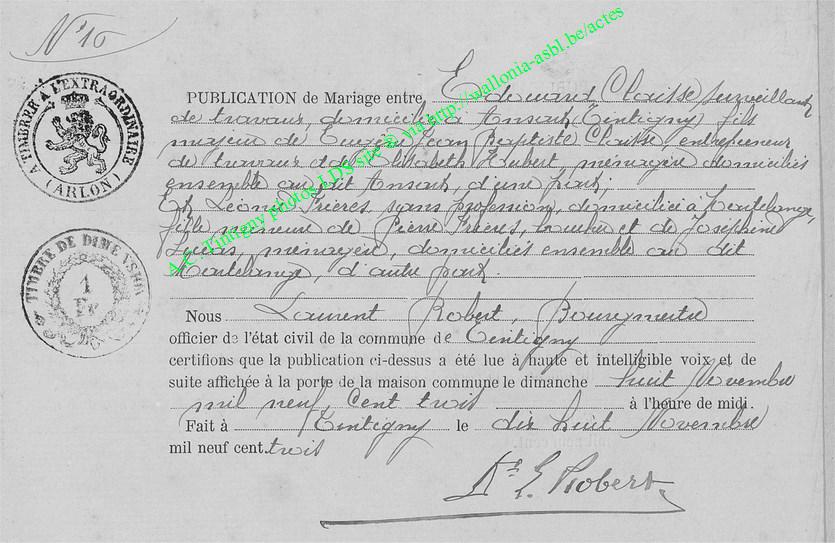 N° 16
A TIMBRER A L'EXTRAORDINAIRE
(ARLON)
TIMBRE DE DIME
1
FR
A.E. Tintigny photos LDS site © via http://wallonia-asbl.be/actes
PUBLICATION de Mariage entre Edouard Claisse, surveillant
de travaux, domicilié à Ansart (Tintigny) fils
majeur de Eugène Jean Baptiste Claisse, entrepreneur
de travaux et de Elisabeth Hubert, ménagère domiciliés
ensemble au dit Ansart, d'une part;
Et Léonie Frères, sans profession, domiciliée à Martelange,
fille mineure de Pierre Frères, et de Joséphine
Lucas, ménagère, domiciliés ensemble au dit
Martelange, d'autre part.
Nous Laurent Robert, Bourgmestre
officier de l'état civil de la commune de Tintigny
certifions que la publication ci-dessus a été lue à haute et intelligible voix et de
suite affichée à la porte de la maison commune le dimanche huit Novembre
mil neuf cent trois à l'heure de midi.
Fait à Tintigny le dix huit Novembre
mil neuf cent trois
Robert